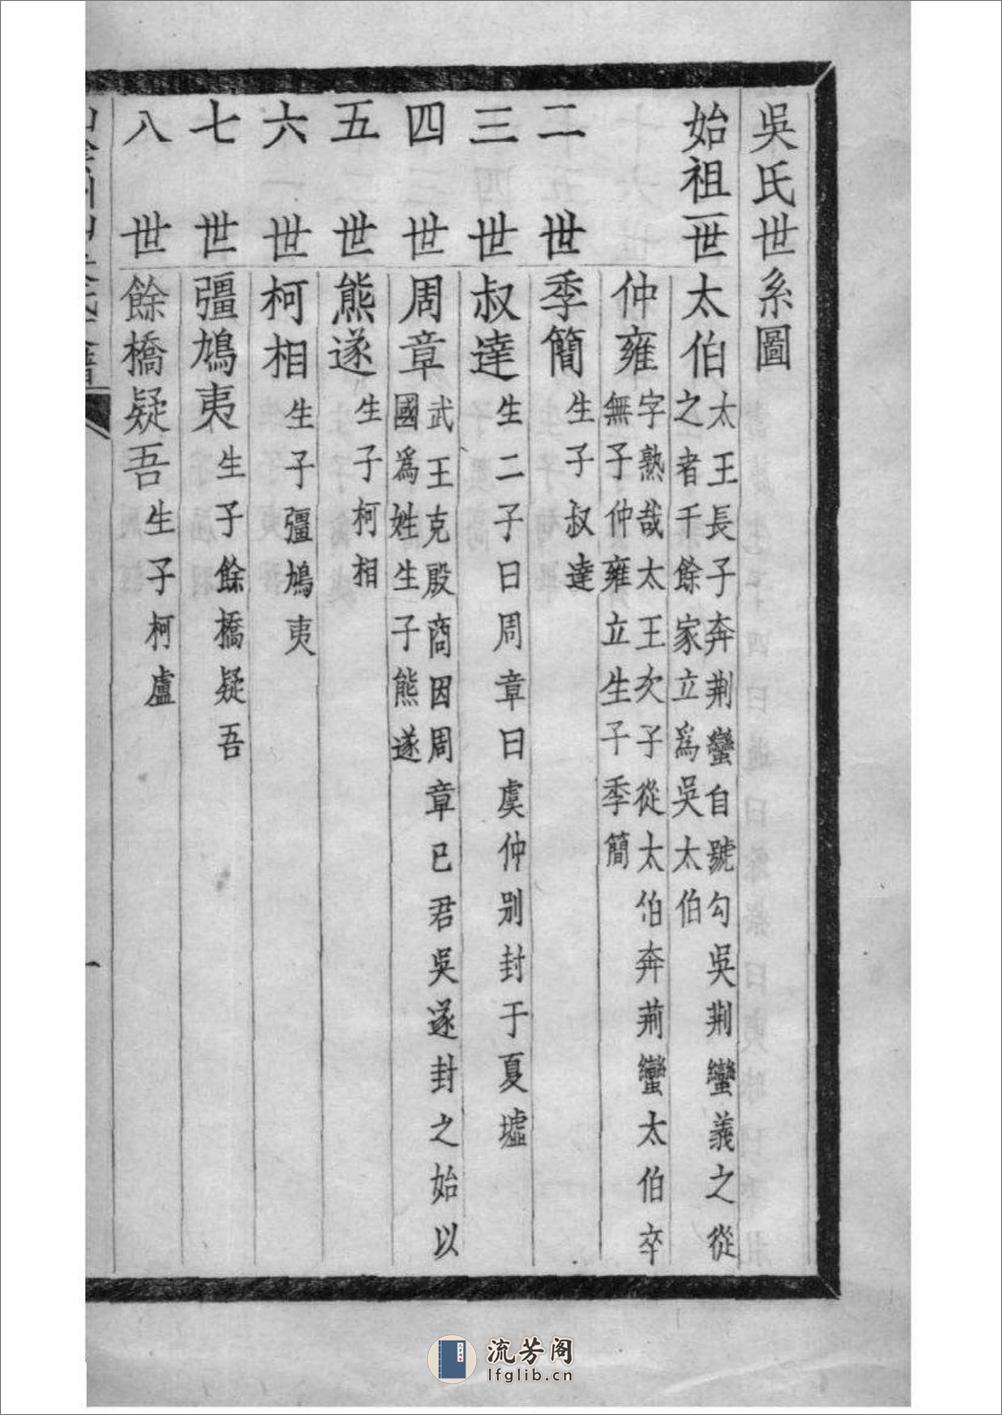 吳氏世系圖
始祖一世 太伯 太王長子奔荆蠻自號勾吳荆蠻義之從
之者千餘家立爲吳太伯
仲雍 字熟哉太王次子從太伯奔荊蠻太伯卒
無子仲雍立生子季簡
二世 季簡 生子叔達
三世 叔達 生二子曰周章曰虞仲别封于夏墟
四世 周章 武王克殷商因周章已君吳遂封之始以
國爲姓生子熊遂
五世 熊遂 生子柯相
六世 柯相 生子彊鳩夷
七世 彊鳩夷 生子餘橋疑吾
八世 餘橋疑吾 生子柯盧
一
流芳阁
lfglib.cn